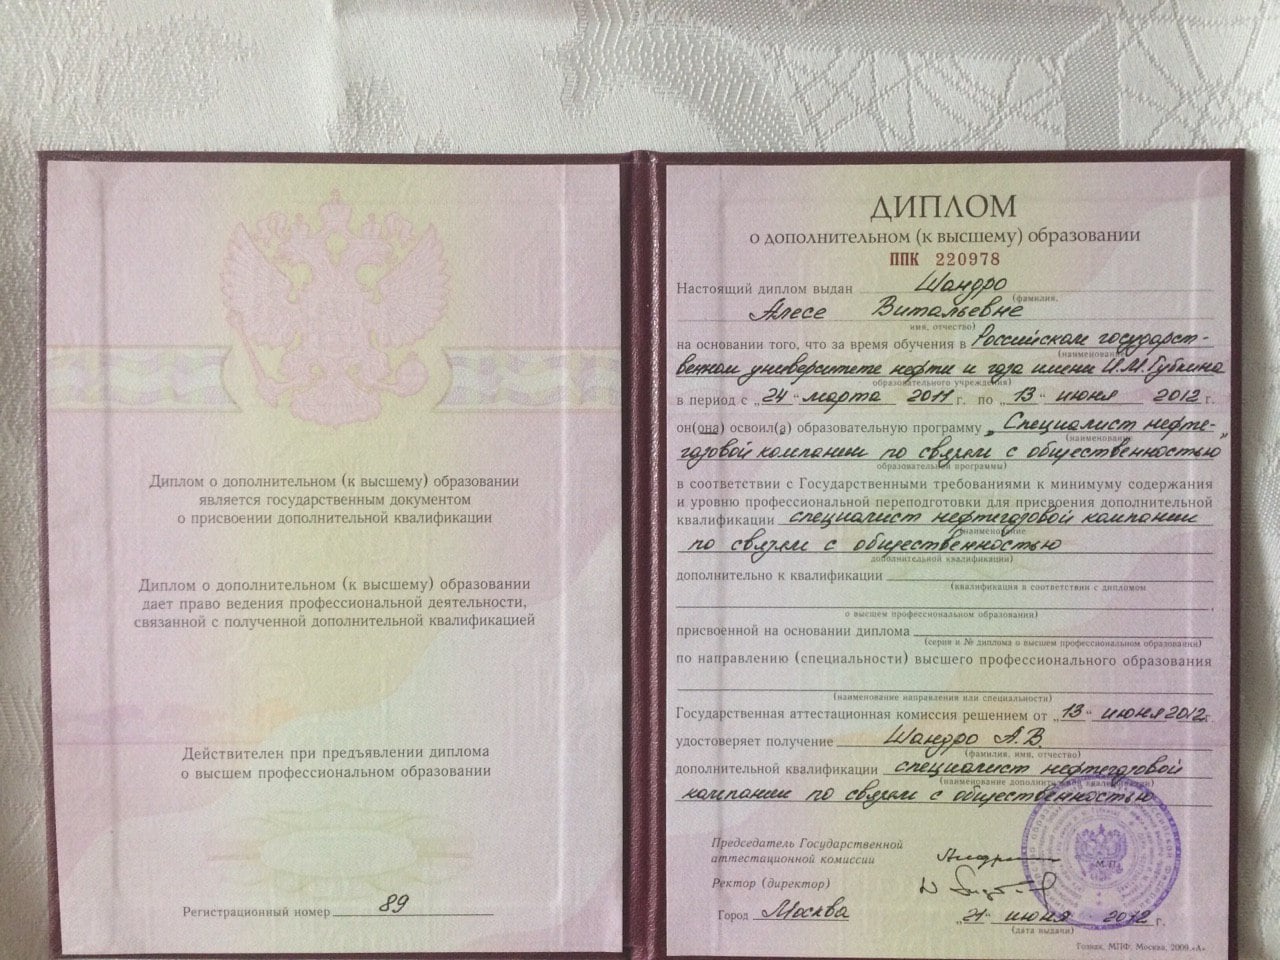 Диплом о дополнительном (к высшему) образовании
является государственным документом
о присвоении дополнительной квалификации
Диплом о дополнительном (к высшему) образовании
дает право ведения профессиональной деятельности,
связанной с полученной дополнительной квалификацией
Действителен при предъявлении диплома
о высшем профессиональном образовании
Регистрационный номер 89
ДИПЛОМ
о дополнительном (к высшему) образовании
ППК 220978
Настоящий диплом выдан Шандро
(фамилия,
Алесе Витальевне
имя, отчество)
на основании того, что за время обучения в Российском государст-
(наименование
венном университете нефти и газа имени И.М. Губкина
образовательного учреждения)
в период с „24“ марта 2011 г. по „13“ июня 2012 г.
он(она) освоил(а) образовательную программу „Специалист нефте-
(наименование
газовой компании по связям с общественностью"
образовательной программы)
в соответствии с Государственными требованиями к минимуму содержания
и уровню профессиональной переподготовки для присвоения дополнительной
квалификации специалист нефтегазовой компании
(наименование
по связям с общественностью
дополнительной квалификации)
дополнительно к квалификации
(квалификация в соответствии с дипломом
о высшем профессиональном образовании)
присвоенной на основании диплома
(серия и № диплома о высшем профессиональном образовании)
по направлению (специальности) высшего профессионального образования
(наименование направления или специальности)
Государственная аттестационная комиссия решением от „13“ июня 2012 г.
удостоверяет получение Шандро А.В.
(фамилия, имя, отчество)
дополнительной квалификации специалист нефтегазовой
(наименование дополнительной квалификации)
компании по связям с общественностью
Председатель Государственной
аттестационной комиссии
М.П.
Ректор (директор)
Город Москва „21“ июня 2012 г.
(дата выдачи)
Гознак, МПФ, Москва, 2009, «А»